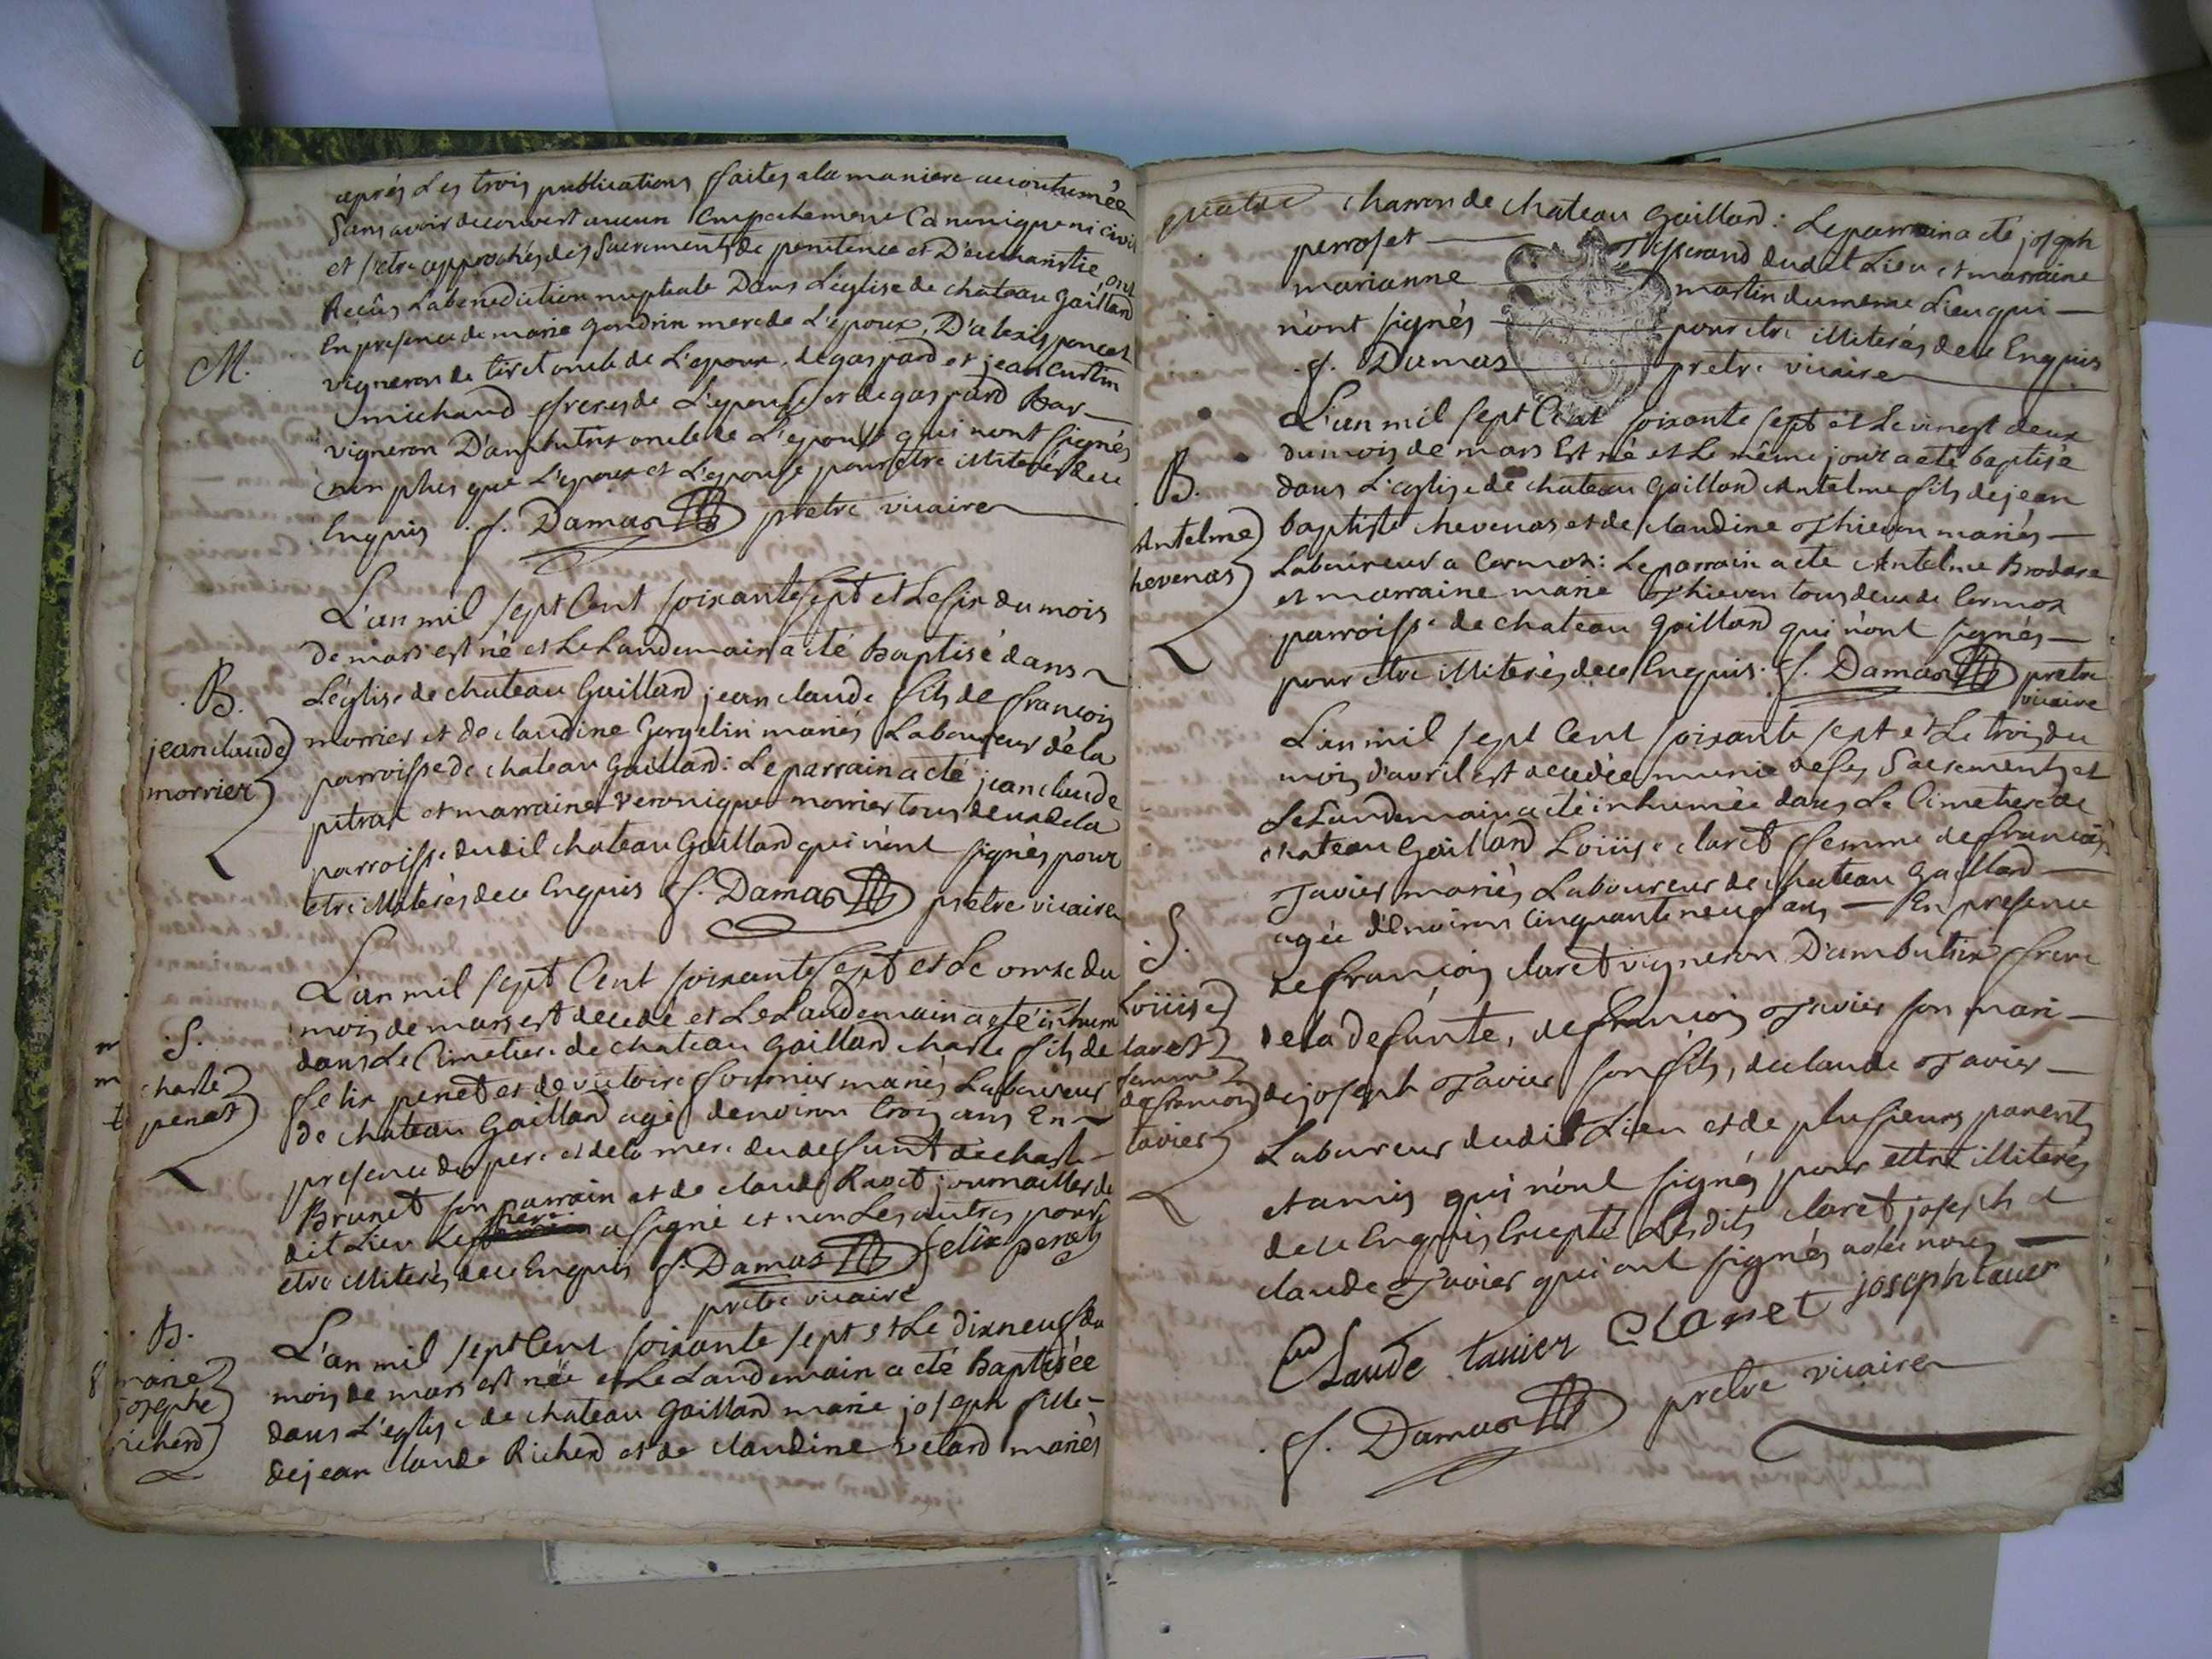 après Les trois publications faites a la maniere accoutumée
Sans avoir decouvert aucun Empechement Canonique ni civil
et s'etre approchés des Sacrements de penitence et D'eucharistie ont
Recûs La benediction nuptiale Dans L'eglise de chateau gaillard
En presence de marie gondrin mere de L'epoux, D'alexis poncet
M.
vigneron de tiret oncle de L'epoux, de gaspard et jean
michaud freres de L'epouse et de gaspard
vigneron D'ambutrix oncle de L'epouse qui n'ont signés
non plus que L'epoux et L'epouse pour etre illiterés de ce
Enquis f. Damas pretre vicaire
L'an mil sept Cent soixante sept et Le six du mois
De mars est né et Le Landemain a eté Baptisé dans
B.
jean claude
morrier
L'église de chateau Gaillard jean claude fils de françois
morrier et de claudine Gergelin mariés Laboureur de la
parroisse de chateau Gaillard: Le parrain a eté jean claude
pitrat et marraine Veronique morrier tous deux de la
parroisse dudil chateau Gaillard qui n'ont signés pour
etre illiterés de ce Enquis f. Damas prêtre vicaire
L'an mil sept Cent soixante sept et Le onze du
mois de mars est decedé et Le Landemain a eté inhum
S.
charle
penet
dans Le Cimetiere de chateau Gaillard charle fils de
felix penet et de victoire fournier mariés Laboureur
de chateau Gaillard agé denviron trois ans En
presence du pere et de la mere du deffunt de charle
Brunet son parrain et de claude Ravet journallier du
dit Lieu Le a signé et non Les autres pour
etre illiterés de ce Enquis f. Damas felix penet
pretre vicaire
B.
marie
josephe
richerd
L'an mil sept Cent soixante sept et Le dix neuf du
mois de mars est née et Le Landemain a eté Baptisée
dans L'église de chateau Gaillard marie joseph fille
de jean claude Richerd et de claudine velard mariés
quatre
charron de chateau Gaillard: Le parrain a eté joseph
perroset Tisserand dudit Lieu et marraine
marianne martin du meme Lieu qui
n'ont signés pour etre illiterés de ce Enquis
f. Damas pretre vicaire
L'an mil sept Cent soixante sept et Le vingt deux
du mois de mars Est né et Le même jour a eté baptisé
B.
Antelme
hevenas
dans L'eglise de chateau Gaillard Antelme fils de jean
baptiste chevenas et de claudine Thievon mariés
Laboureur a Cormoz: Le parrain a ete Antelme
et marraine marie Thievon tous deux de Cormoz
parroisse de chateau Gaillard qui n'ont signés
pour etre illiterés de ce Enquis. f. Damas pretre
vicaire
L'an mil sept Cent soixante sept et Le trois du
mois d'avril est decedée munie de ses Sacrements et
Le Landemain a eté inhumée dans Le Cimetiere de
chateau Gaillard Loüise claret femme de françois
Tavier mariés Laboureur de chateau Gaillard
S.
Loüise
claret
femme
de françois
tavier
agée d'environ Cinquante neuf ans En presence
de françois claret vigneron D'ambutrix frere
de la defunte, de françois Tavier son mari
de joseph Tavier son fils, de claude Tavier
Laboureur dudit Lieu et de plusieurs parents
et amis qui n'ont signés pour ettre illiterés
de ce Enquis Excepté Lesdits claret joseph et
claude Tavier qui ont signés avec nous
Claude tavier Claret joseph tavier
f. Damas pretre vicaire